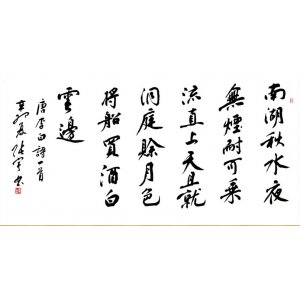 南湖秋水夜
無煙耐可乘
流直上天且就
洞庭賒月色
將船買酒白
雲邊
唐李白詩一首